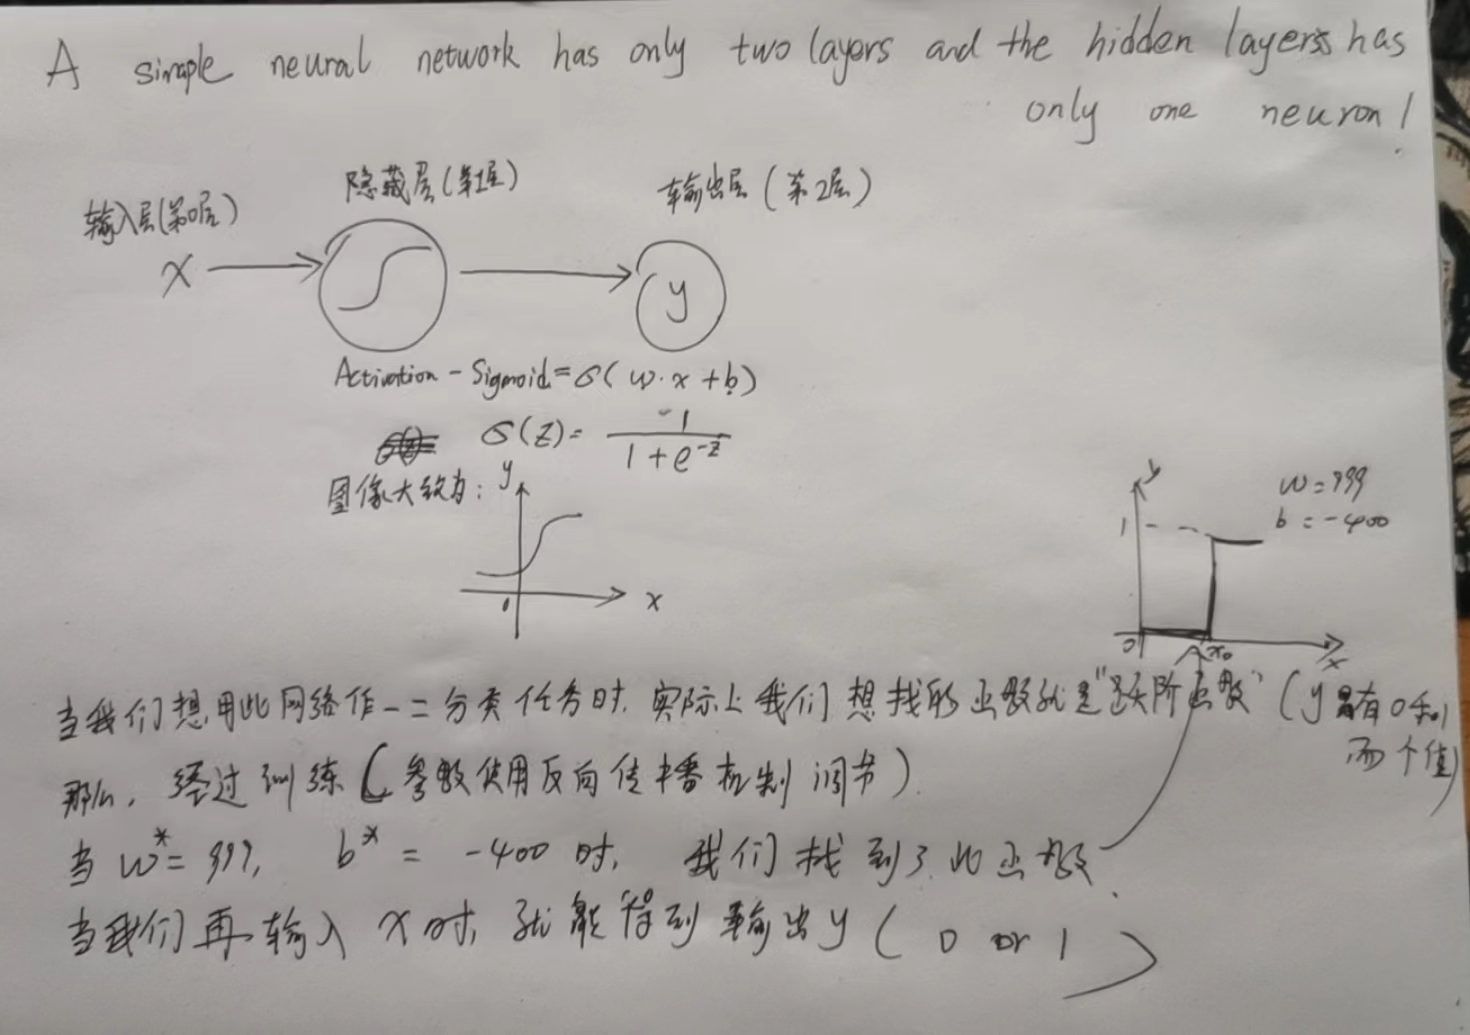 A simple neural network has only two layers and the hidden layers has
only one neuron!
输入层(第0层)
隐藏层(第1层)
输出层(第2层)
x
y
Activation - Sigmoid = σ(w·x+b)
σ(z) = 1 / (1 + e^-z)
图像大致为:
y
0
x
y
1
w=999
b=-400
0
x₀
x
当我们想用此网络作一二分类任务时,实际上我们想找的函数就是"跃阶函数"(y只有0和1
两个值)
那么,经过训练(参数使用反向传播机制调节).
当w*=999, b*=-400时,我们找到了此函数.
当我们再输入x时,就能得到输出y(0 or 1)